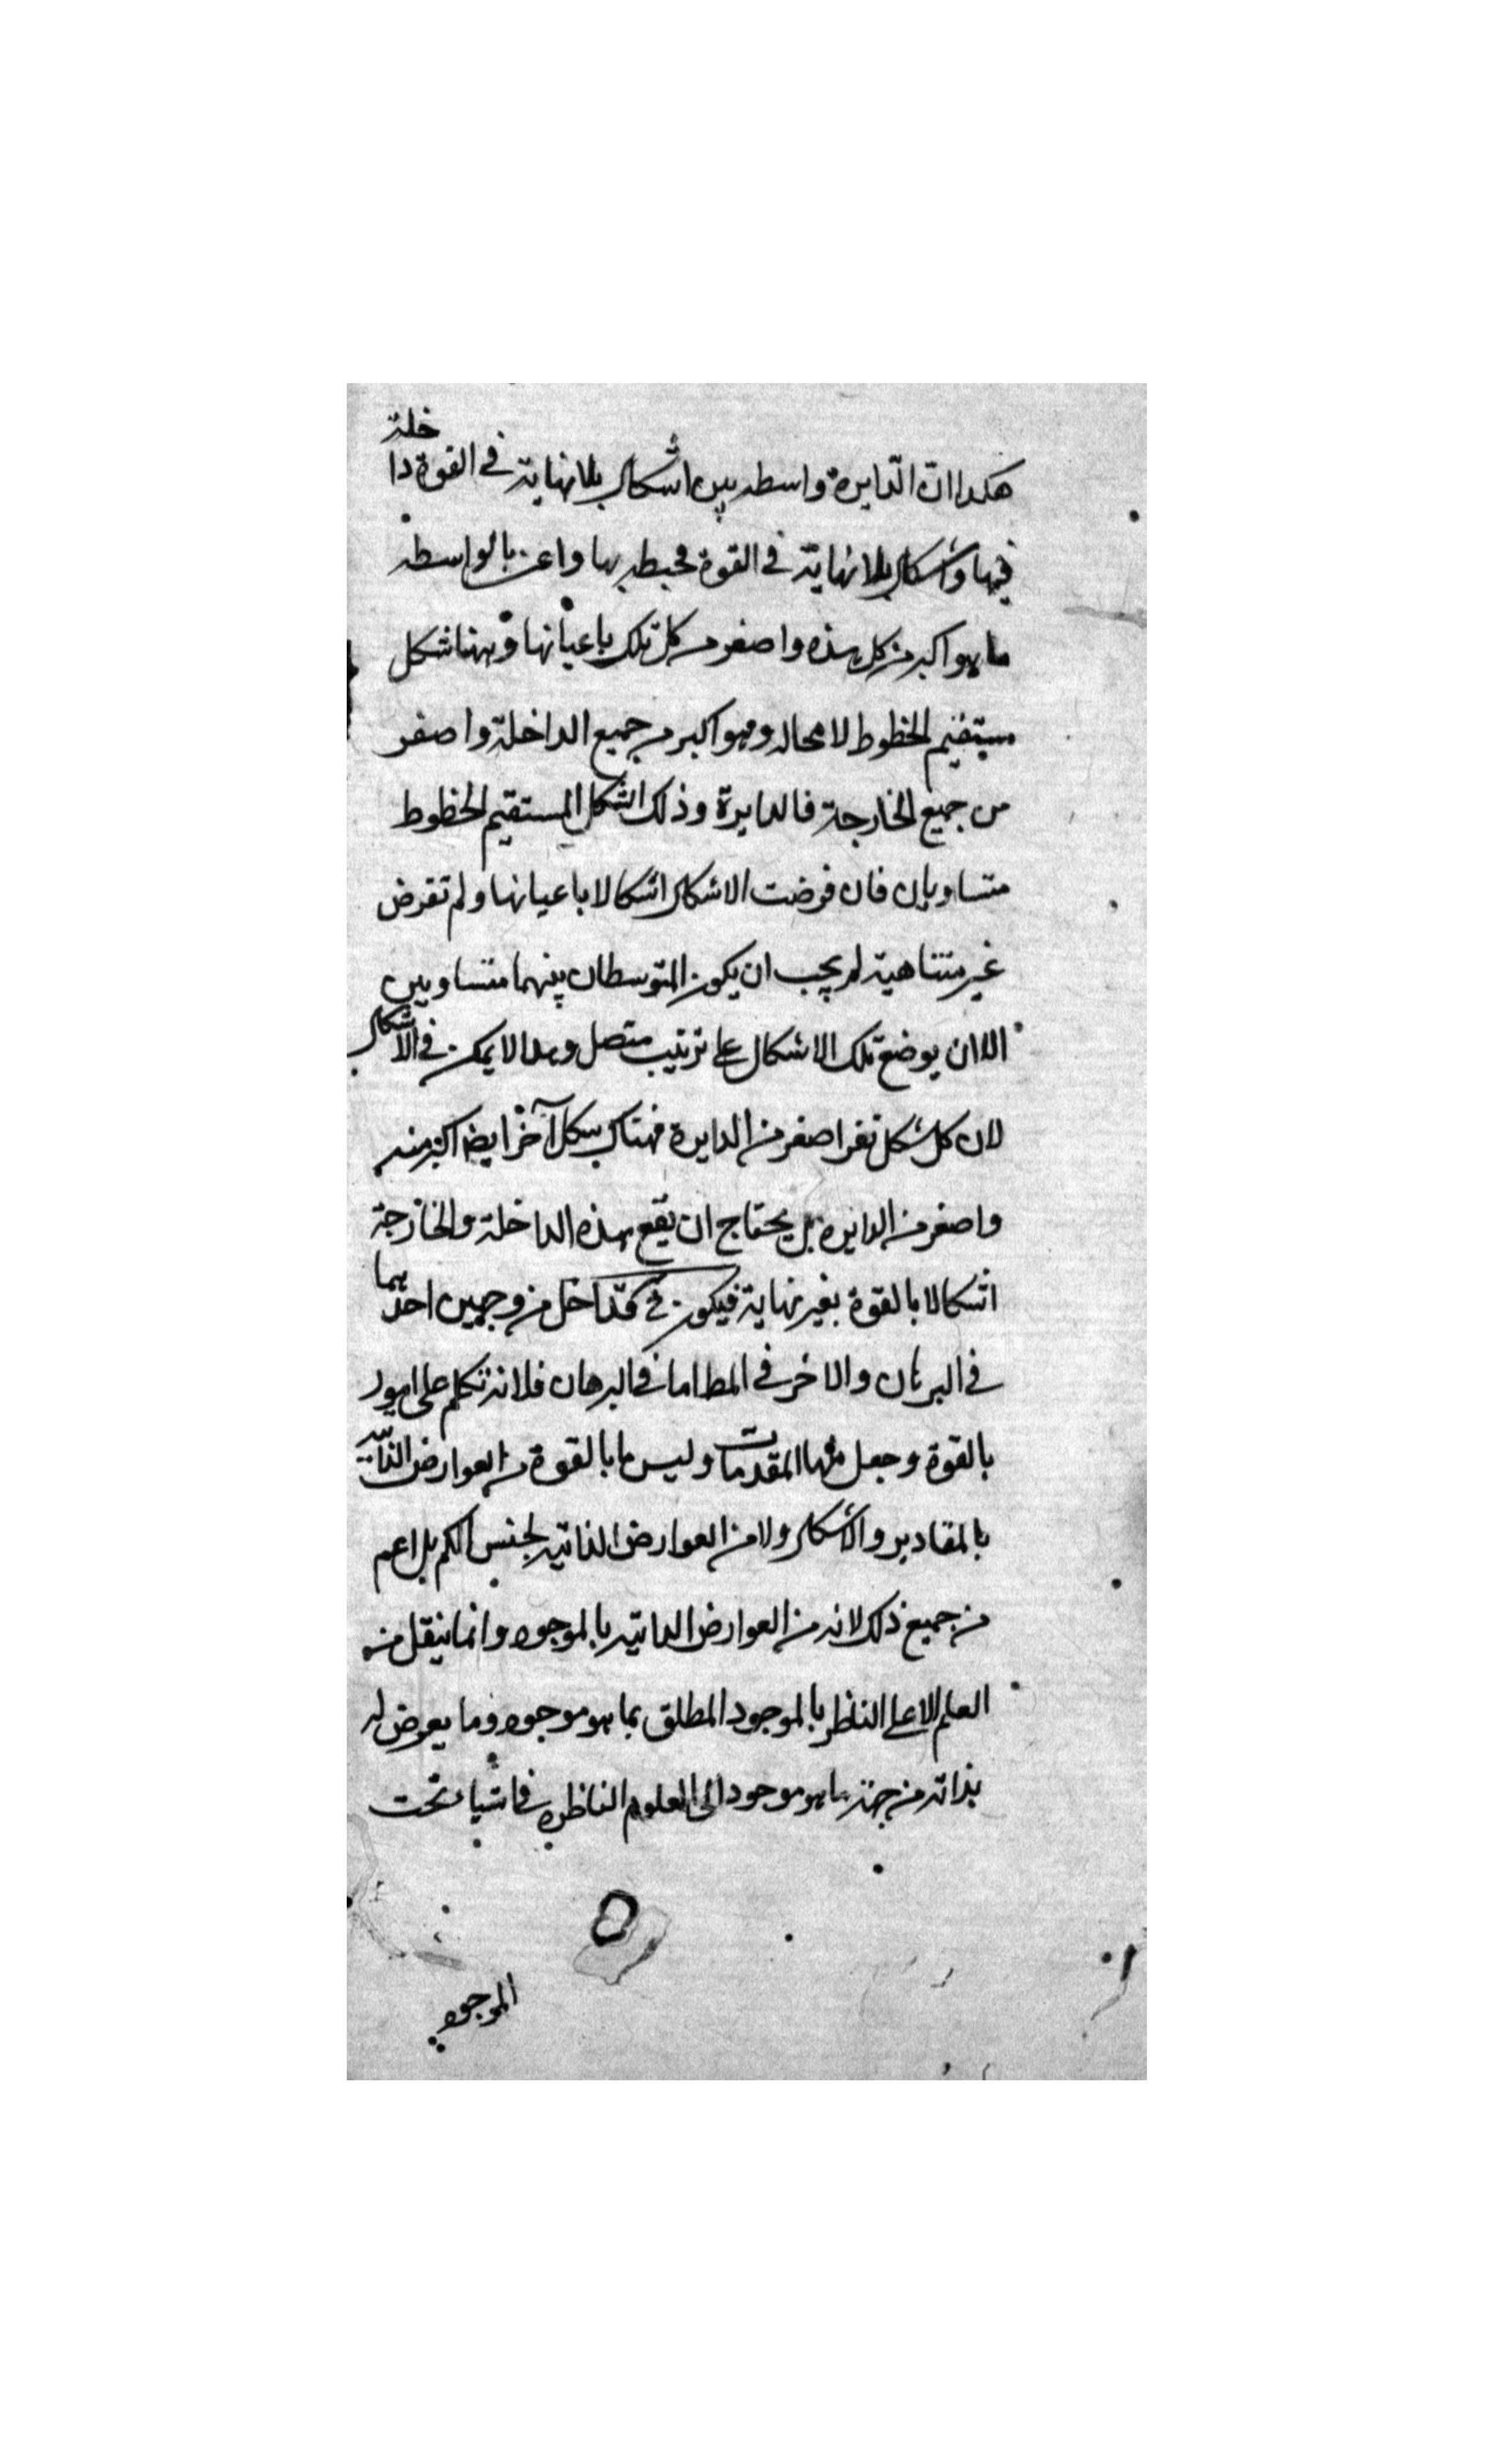 هكذا ان الدايرة واسطه بين اشكال بلا نهاية في القوة داخلة
فيها واشكال بلا نهاية في القوة محيطه بها واعن بالواسطه
ما هو اكبر من كل هذه واصغر من كل تلك باعيانها وههنا شكل
مستقيم الخطوط لا محاله وهو اكبر من جميع الداخلة واصغر
من جميع الخارجة فالدايرة وذلك الشكل المستقيم الخطوط
متساويان فان فرضت الاشكال اشكالا باعيانها ولم تفرض
غير متناهية لم يجب ان يكون المتوسطان بينهما متساويين
الا ان يوضع تلك الاشكال على ترتيب متصل وهذا لا يمكن في الاشكال
لان كل شكل تفر اصغر من الدايرة فهناك شكل آخر ايضا اكبر منه
واصغر من الدايرة بل يحتاج ان يقع هذه الداخلة والخارجة
اشكالا بالقوة بغير نهاية فيكون في تداخل من وجهين احدهما
في البرهان والاخر في المط اما في البرهان فلانه تكلم على امور
بالقوة وجعل منها المقدمات وليس ما بالقوة من العوارض الذاتية
بالمقادير والاشكال ولا من العوارض الذاتية لجنس الكم بل اعم
من جميع ذلك لانه من العوارض الذاتيه بالموجود وانما ينقل من
العلم الاعلى الناظر بالموجود المطلق بما هو موجود وما يعرض له
بذاته من جهة ما هو موجود الى العلوم الناظره في اشياء تحت
الموجود